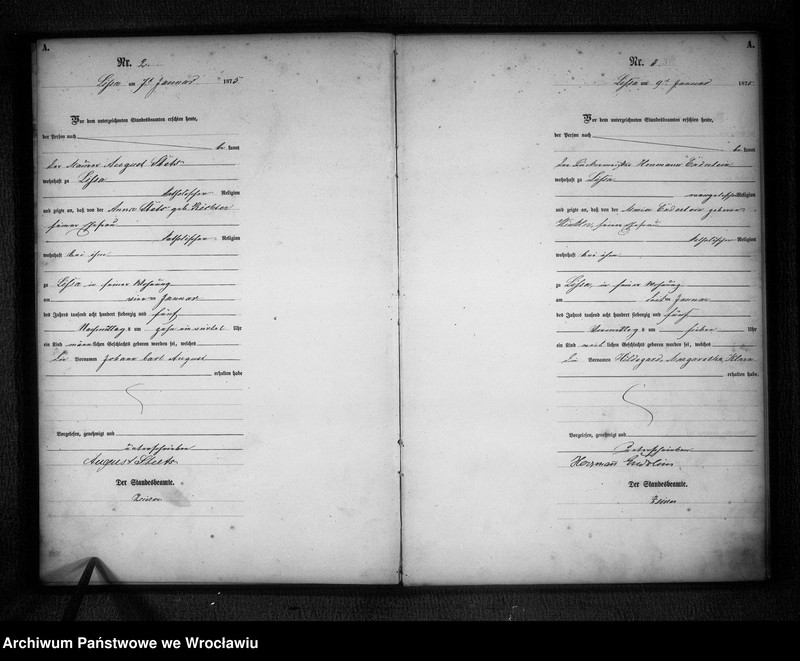 A.
Nr. 2.
Lissa am 7t Januar 1875
Vor dem unterzeichneten Standesbeamten erschien heute,
der Person nach
be kannt
der Maurer August
wohnhaft zu Lissa
katholischer Religion
und zeigte an, daß von der Anna geb. Richter
seiner Ehefrau
katholischer Religion
wohnhaft bei ihm
zu Lissa in seiner Wohnung
am vierten Januar
des Jahres tausend acht hundert siebenzig und fünf
Nachmittag s um zehn ein viertel Uhr
ein Kind männlichen Geschlechts geboren worden sei, welches
die Vornamen Johann Carl August
erhalten habe
Vorgelesen, genehmigt und
unterschrieben
August
Der Standesbeamte.
A.
Nr. 3.
Lissa am 9t Januar 1875
Vor dem unterzeichneten Standesbeamten erschien heute,
der Person nach
be kannt
der Herrmann Enderlein
wohnhaft zu Lissa
evangelischer Religion
und zeigte an, daß von der Maria Enderlein geborne
seiner Ehefrau
katholischer Religion
wohnhaft bei ihm
zu Lissa, in seiner Wohnung
am Januar
des Jahres tausend acht hundert siebenzig und fünf
Vormittag s um sieben Uhr
ein Kind weiblichen Geschlechts geboren worden sei, welches
die Vornamen Hildegard, Margaretha, Klara
erhalten habe.
Vorgelesen, genehmigt und
unterschrieben
Herrman Enderlein
Der Standesbeamte.
Archiwum Państwowe we Wrocławiu